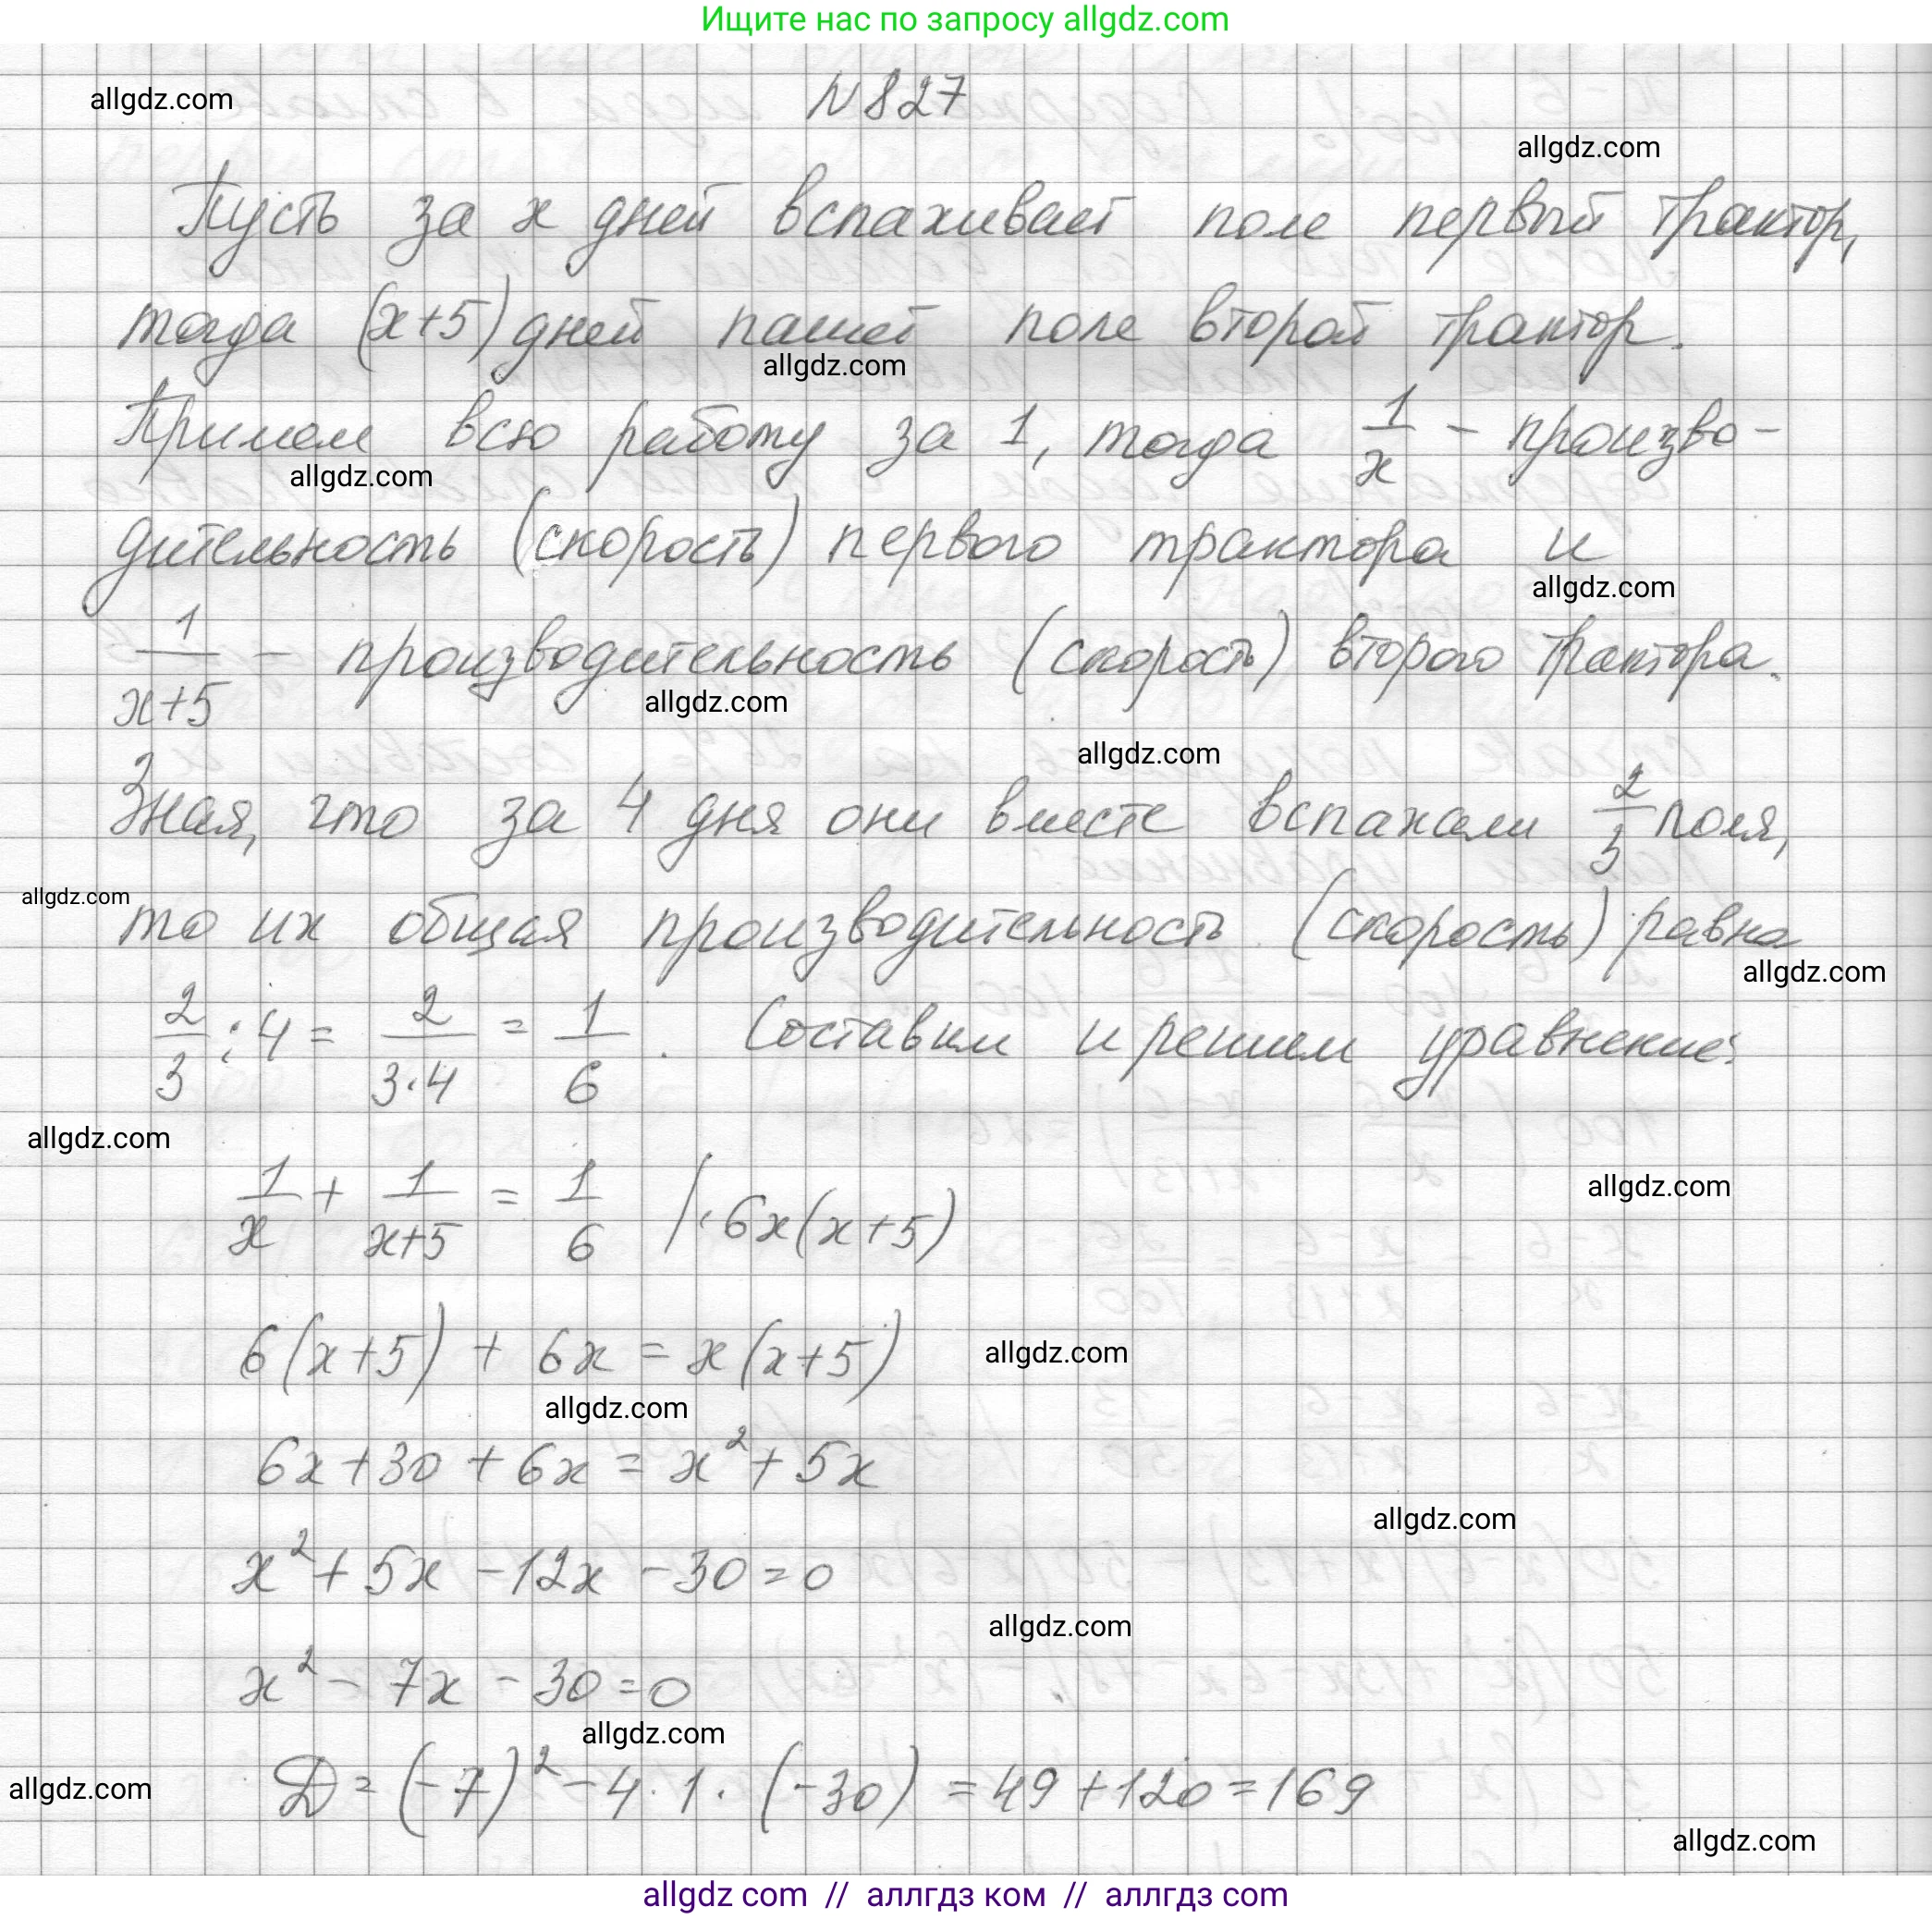 Ищите нас по запросу allgdz.com
N 827
allgdz.com
allgdz.com
Пусть за x дней вспахивает поле первый трактор,
тогда (x+5) дней пашет поле второй трактор.
allgdz.com
Примем всю работу за 1, тогда 1/x – произво-
allgdz.com
дительность (скорость) первого трактора и
allgdz.com
1/(x+5) – производительность (скорость) второго трактора.
allgdz.com
allgdz.com
Зная, что за 4 дня они вместе вспахали 2/3 поля,
allgdz.com
то их общая производительность (скорость) равна
allgdz.com
2/3 : 4 = 2/(3·4) = 1/6. Составим и решим уравнение:
allgdz.com
1/x + 1/(x+5) = 1/6 |·6x(x+5)
allgdz.com
6(x+5) + 6x = x(x+5)
allgdz.com
allgdz.com
6x+30+6x = x²+5x
allgdz.com
x²+5x-12x-30=0
allgdz.com
x²-7x-30=0
allgdz.com
allgdz.com
D = (-7)²-4·1·(-30) = 49+120=169
allgdz.com
allgdz com // аллгдз ком // аллгдз com